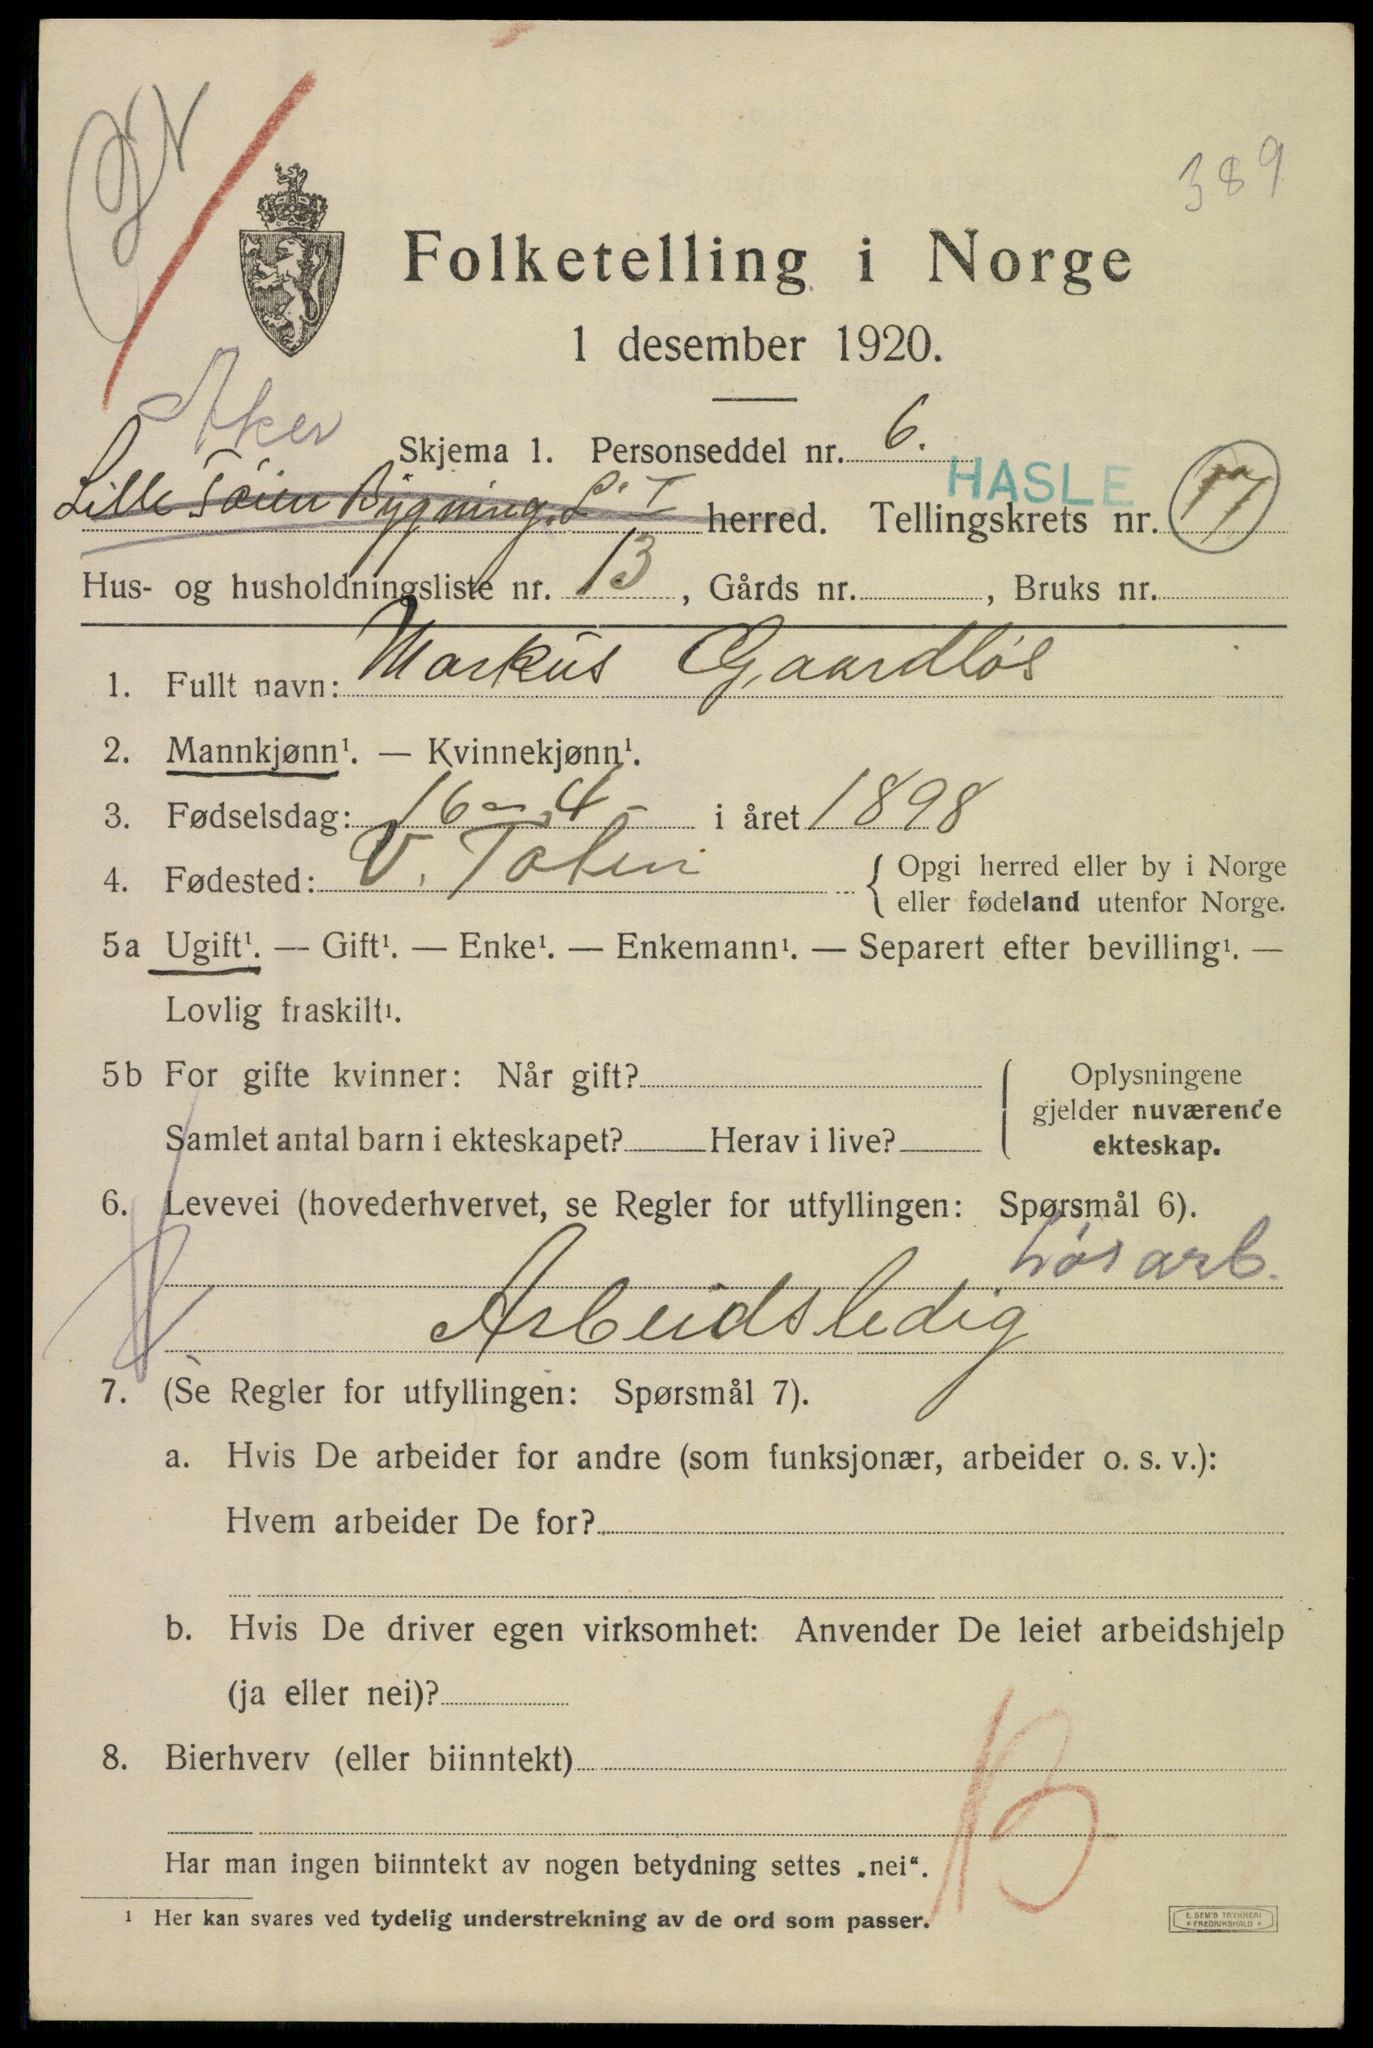 389
Folketelling i Norge
1 desember 1920.
Aker
Skjema 1. Personseddel nr. 6.
HASLE
Lille Tøien Bygning. L. I herred. Tellingskrets nr. 17
Hus- og husholdningsliste nr. 13, Gårds nr. , Bruks nr.
1. Fullt navn: Markus Gaardløs
2. Mannkjønn¹. — Kvinnekjønn¹.
3. Fødselsdag: 16 - 4 - i året 1898
4. Fødested: V. Toten { Opgi herred eller by i Norge
eller fødeland utenfor Norge.
5a Ugift¹. — Gift¹. — Enke¹. — Enkemann¹. — Separert efter bevilling¹. —
Lovlig fraskilt¹.
5b For gifte kvinner: Når gift? ( Oplysningene
gjelder nuværende
Samlet antal barn i ekteskapet? Herav i live? ekteskap.
6. Levevei (hovederhvervet, se Regler for utfyllingen: Spørsmål 6).
Løsarb.
Arbeidsledig
7. (Se Regler for utfyllingen: Spørsmål 7).
a. Hvis De arbeider for andre (som funksjonær, arbeider o. s. v.):
Hvem arbeider De for?
b. Hvis De driver egen virksomhet: Anvender De leiet arbeidshjelp
(ja eller nei)?
8. Bierhverv (eller biinntekt)
B
Har man ingen biinntekt av nogen betydning settes „nei“.
¹ Her kan svares ved tydelig understrekning av de ord som passer.
E. SEM'S TRYKKERI
* FREDRIKSHALD *